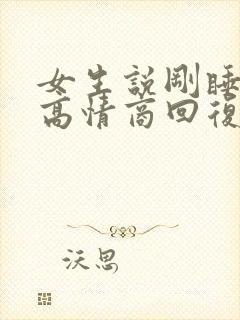 女生説剛睡
高情商回復
沃思